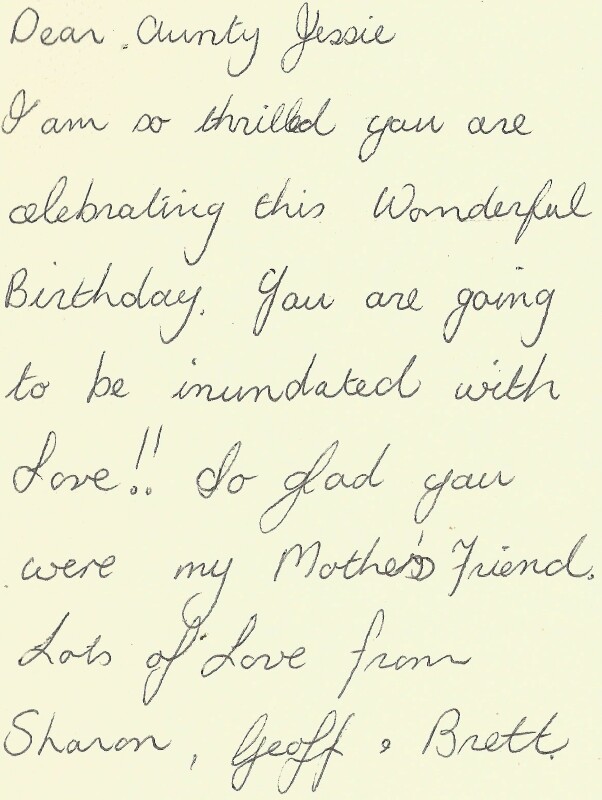 Dear Aunty Jessie
I am so thrilled you are
celebrating this Wonderful
Birthday. You are going
to be inundated with
Love!! So glad you
were my Mother's Friend.
Lots of Love from
Sharon, Geoff & Brett.